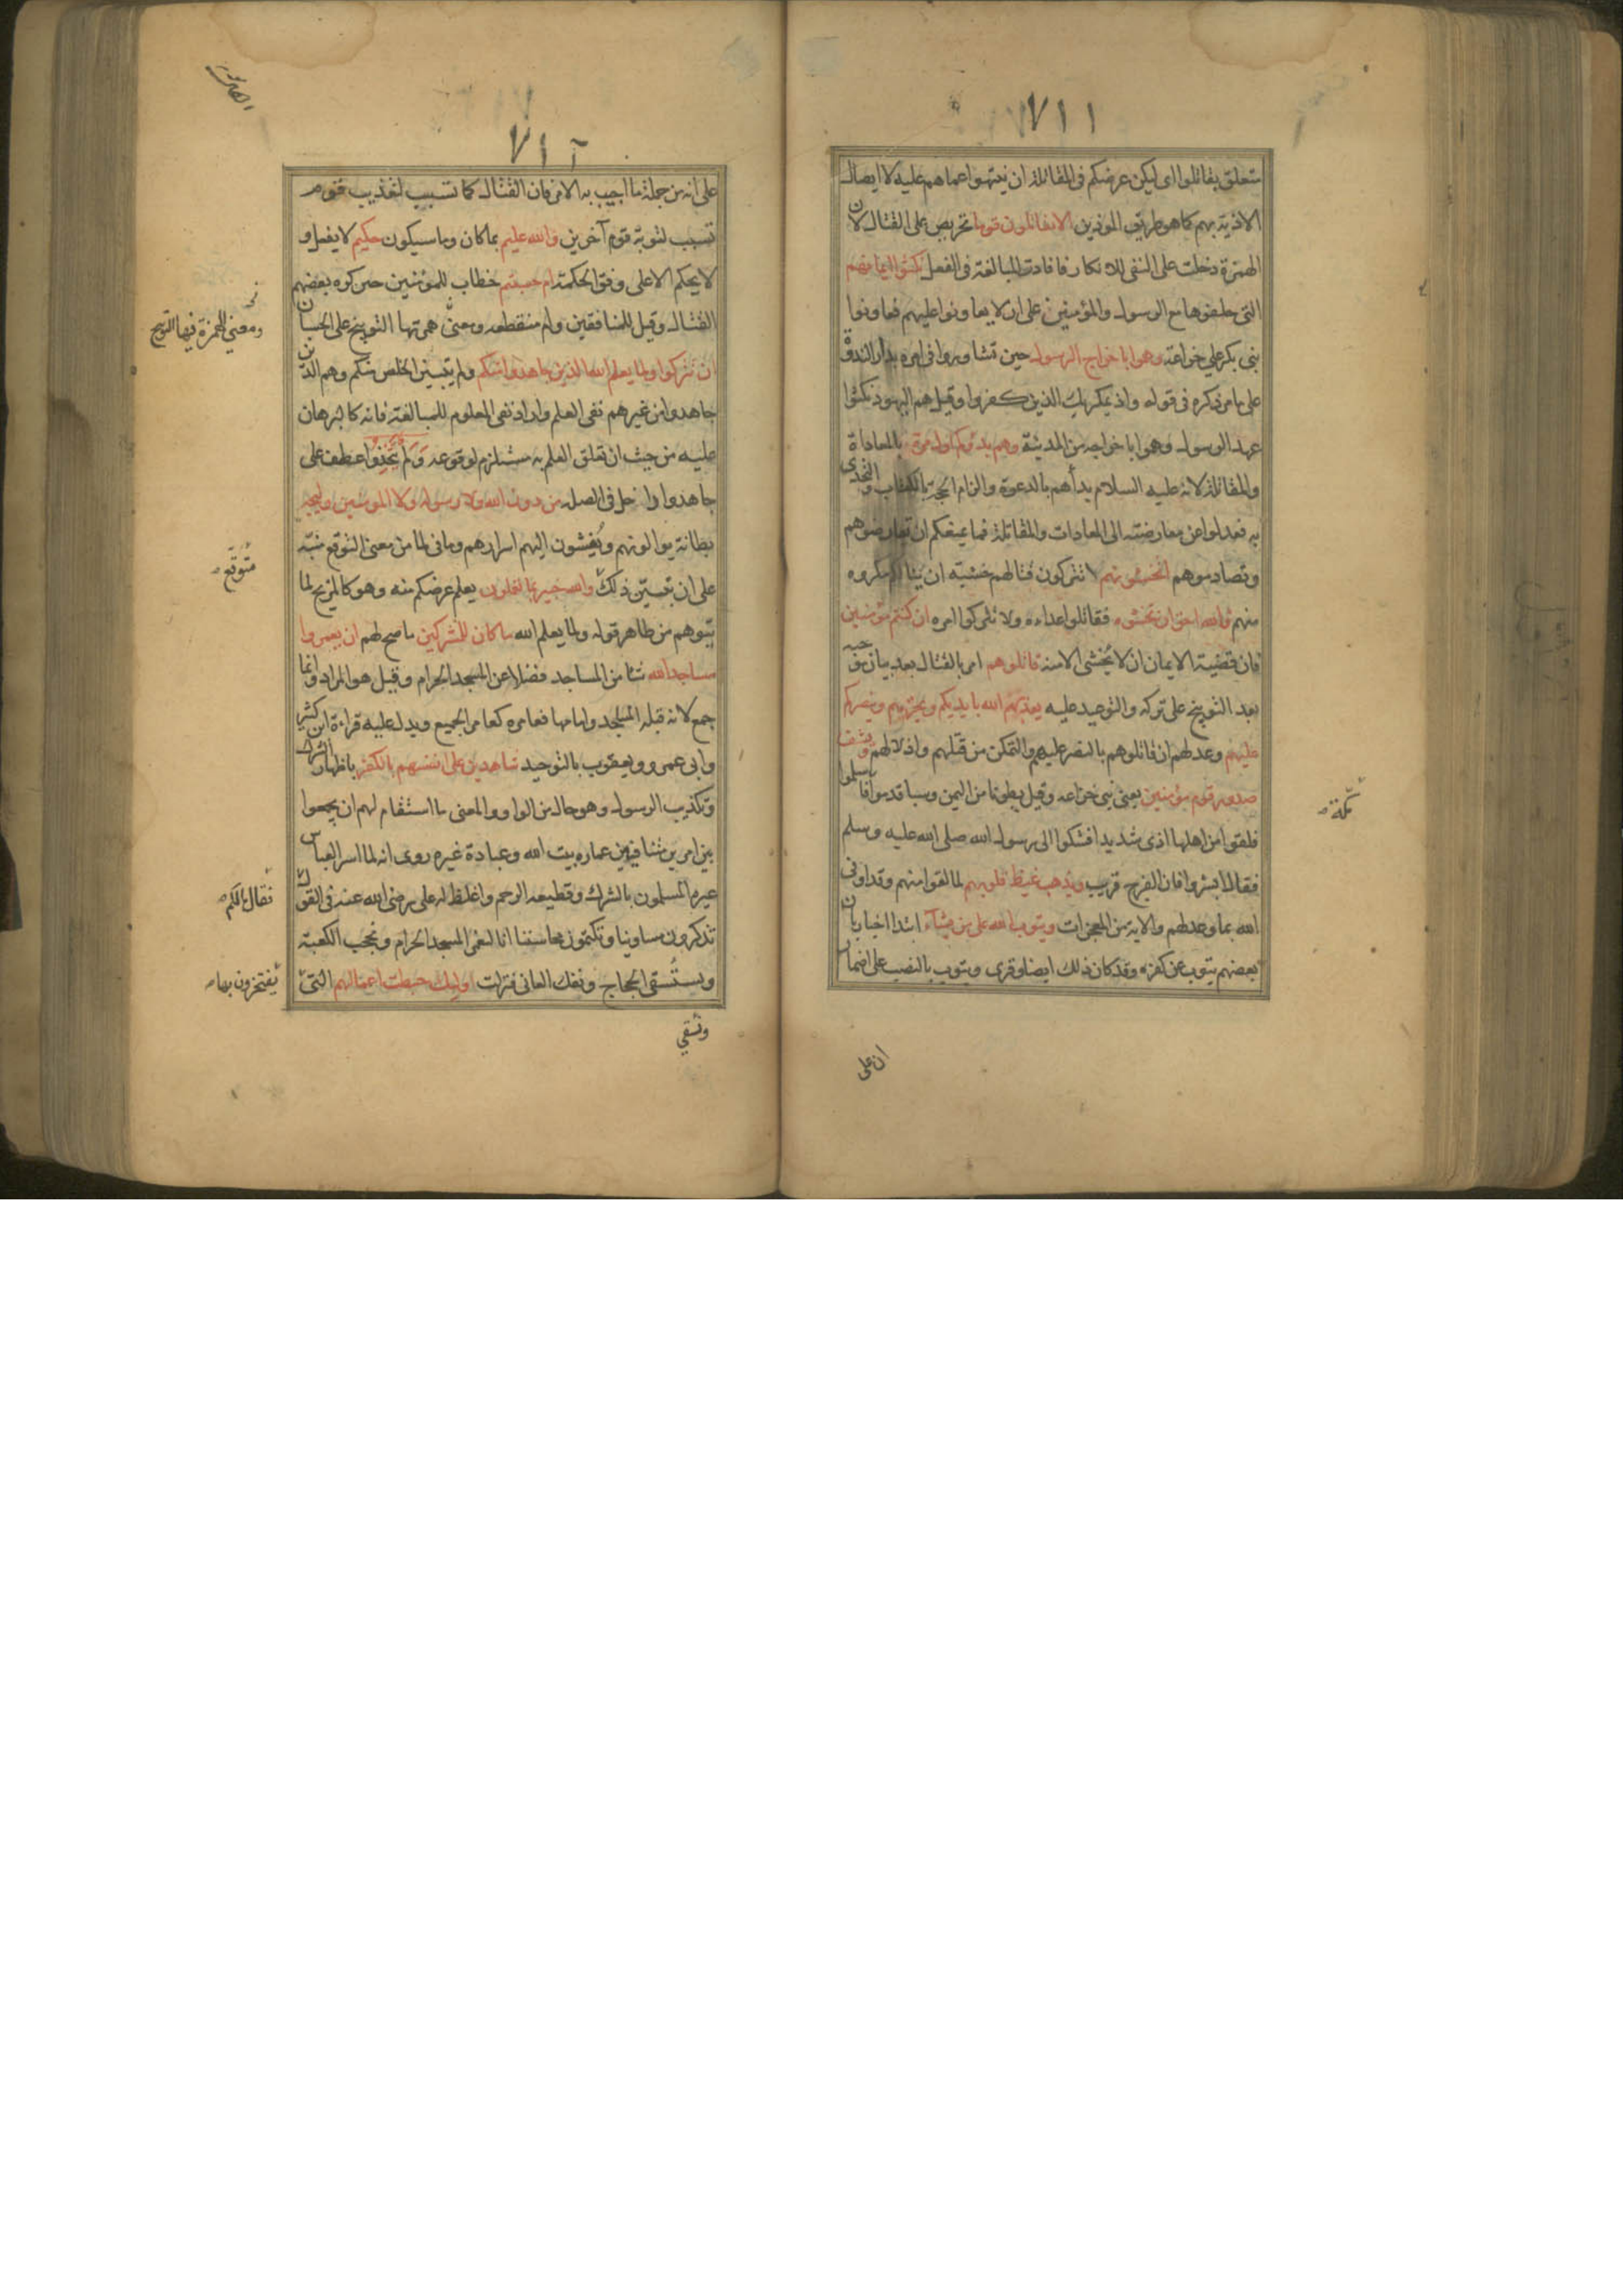 ٧١١
متعلق بقاتلوا اى ليكن غرضكم فى المقاتلة ان ينتهوا عما هم عليه لا ايصال
الاذية بهم كما هو طريق الموذين الا تقاتلون قوما تحريص على القتال لان
الهمزة دخلت على النفى للانكار فافادت المبالغة فى الفعل نكثوا ايمانهم
التى حلفوها مع الرسول والمؤمنين على ان لا يعاونوا عليهم فعاونوا
بنى بكر على خزاعة وهموا باخراج الرسول حين تشاوروا فى امره بدار الندوة
على ما مر ذكره فى قوله واذ يمكر بك الذين كفروا وقيل هم اليهود نكثوا
عهد الرسول وهموا باخراجه من المدينة وهم بدؤكم اول مرة بالمعاداة
والمقاتلة لانه عليه السلام بدأهم بالدعوة والزام الحجة بالكتاب والتحدى
به فعدلوا عن معارضته الى المعادات والمقاتلة فما يمنعكم ان تعارضوهم
وتصادموهم اتخشونهم لا تتركون قتالهم خشية ان ينالكم مكروه
منهم فالله احق ان تخشوه فقاتلوا اعداءه ولا تتركوا امره ان كنتم مؤمنين
فان قضية الايمان ان لا يخشى الا منه قاتلوهم امر بالقتال بعد بيان موجبه
بعد التوبيخ على تركه والتوعيد عليه يعذبهم الله بايديكم ويخزهم وينصركم
عليهم وعد لهم ان قاتلوهم بالنصر عليهم والتمكن من قتلهم واذلالهم ويشف
صدور قوم مؤمنين يعنى بنى خزاعه وقيل بطونا من اليمن وسبا قدموا فاسلموا
مكة
فلقوا من اهلها اذى شديدا فشكوا الى رسول الله صلى الله عليه وسلم
فقال ابشروا فان الفرج قريب ويذهب غيظ قلوبهم لما لقوا منهم وقد اوفى
الله بما وعدلهم والاية من المعجزات ويتوب الله على من يشآء ابتدا اخبار بان
بعضهم يتوب عن كفره وقد كان ذلك ايضا وقرى ويتوب بالنصب على اضمار
ان على
٧١٢
على انه من جملة ما اجيب به الامر فان القتال كما تسبب لتعذيب قوم
تسبب لتوبة قوم آخرين والله عليم بما كان وما سيكون حكيم لا يفعل و
لا يحكم الا على وفق الحكمة ام حسبتم خطاب للمؤمنين حين كره بعضهم
القتال وقيل للمنافقين وام منقطعه ومعنى همزتها التوبيخ على الحسبان
ومعنى الهمزة فيها التوبيخ
ان تتركوا ولما يعلم الله الذين جاهدوا منكم ولم يتبين الخلص منكم وهم الذين
جاهدوا من غيرهم نفى العلم واراد نفى المعلوم للمبالغة فانه كالبرهان
عليه من حيث ان تعلق العلم به مستلزم لوقوعه وَلَمْ يَتَّخِذُوا عطف على
جاهدوا داخل فى الصله من دون الله ولا رسوله ولا المومنين وليجه
بطانة يوالونهم ويُفشون اليهم اسرارهم وما فى لما من معنى التوقع منبه
متوقع
على ان تبين ذلك والله خبير بما تعملون يعلم غرضكم منه وهو كالمزيح لما
يتوهم من ظاهر قوله ولما يعلم الله ما كان للمشركين ما صح لهم ان يعمروا
مساجد الله شئا من المساجد فضلا عن المسجد الحرام وقيل هو المراد وانما
جمع لانه قبلة المساجد وامامها فعامره كعامر الجميع ويدل عليه قراءة ابن كثير
وابى عمرو ويعقوب بالتوحيد شاهدين على انفسهم بالكفر باظهار الشرك
وتكذيب الرسول وهو حال من الواو والمعنى ما استقام لهم ان يجمعوا
بين امرين متنافيين عماره بيت الله وعبادة غيره روى انه لما اسر العباس
عيره المسلمون بالشرك وقطيعه الرحم واغلظ له على رضى الله عنه فى القول
فقال ما لكم
تذكرون مساوينا وتكتمون محاسننا انا لنعمر المسجد الحرام ونحجب الكعبة
ونسقى الحجاج ونفك العانى فنزلت اوليك حبطت اعمالهم التى
يفتخرون بها
ونسقي